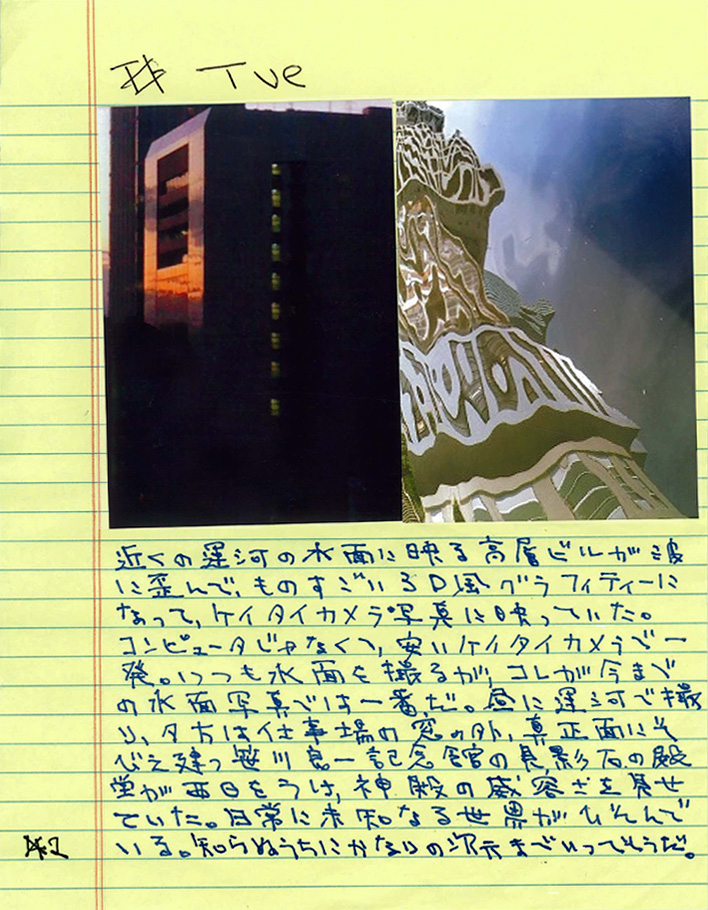 Tue
近くの運河の水面に映る高層ビルが波
に歪んで、ものすごい3D風グラフィティーに
なって、ケイタイカメラ写真に映っていた。
コンピュータじゃなくて、安いケイタイカメラで一
発。いつも水面を撮るが、コレが今まで
の水面写真では一番だ。昼に運河で撮
り、夕方は仕事場の窓の外、真正面にそ
びえ建つ笹川良一記念館の黒影石の殿
堂が西日をうけ、神殿の威容さを見せ
ていた。日常に未知なる世界がひそんで
いる。知らぬうちにかなりの次元までいってそうだ。